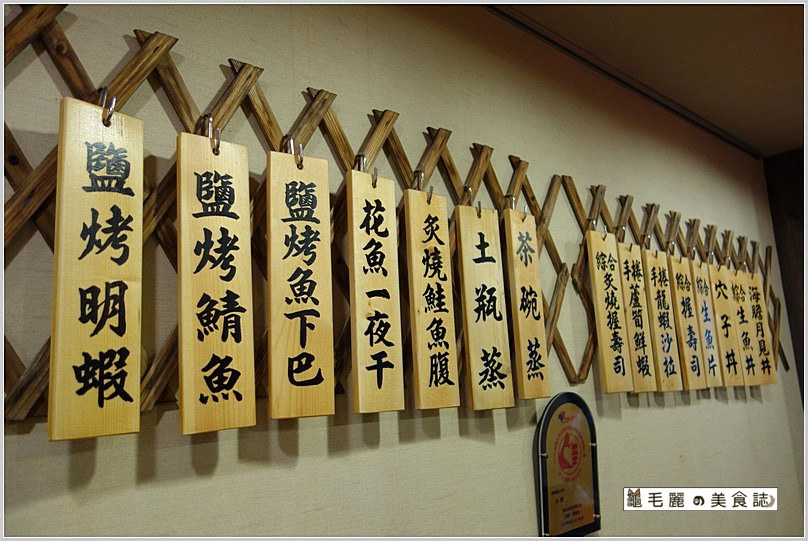 鹽烤明蝦
鹽烤鯖魚
鹽烤魚下巴
花魚一夜干
炙燒鮭魚腹
土瓶蒸
茶碗蒸
綜合炙燒握壽司
手捲蘆筍鮮蝦
手捲龍蝦沙拉
綜合握壽司
綜合生魚片
穴子丼
綜合生魚丼
海膽月見丼
龜毛麗の美食誌